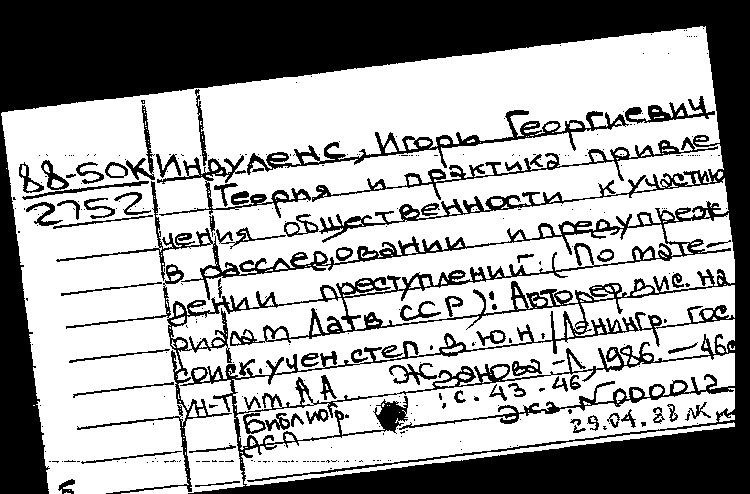 88-50К Индуленс, Игорь Георгиевич
2752 Теория и практика привле
чения общественности к участию
в расследовании и предупреж
дении преступлений: (По мате-
риалам Латв. ССР): Автореф. дис. на
соиск. учен. степ. д.ю.н. /Ленингр. гос.
ун-т им. А.А. Жданова -Л, 1986. - 46с
Библиогр. : с. 43-46
ДСП Экз. N000012
29.04.88